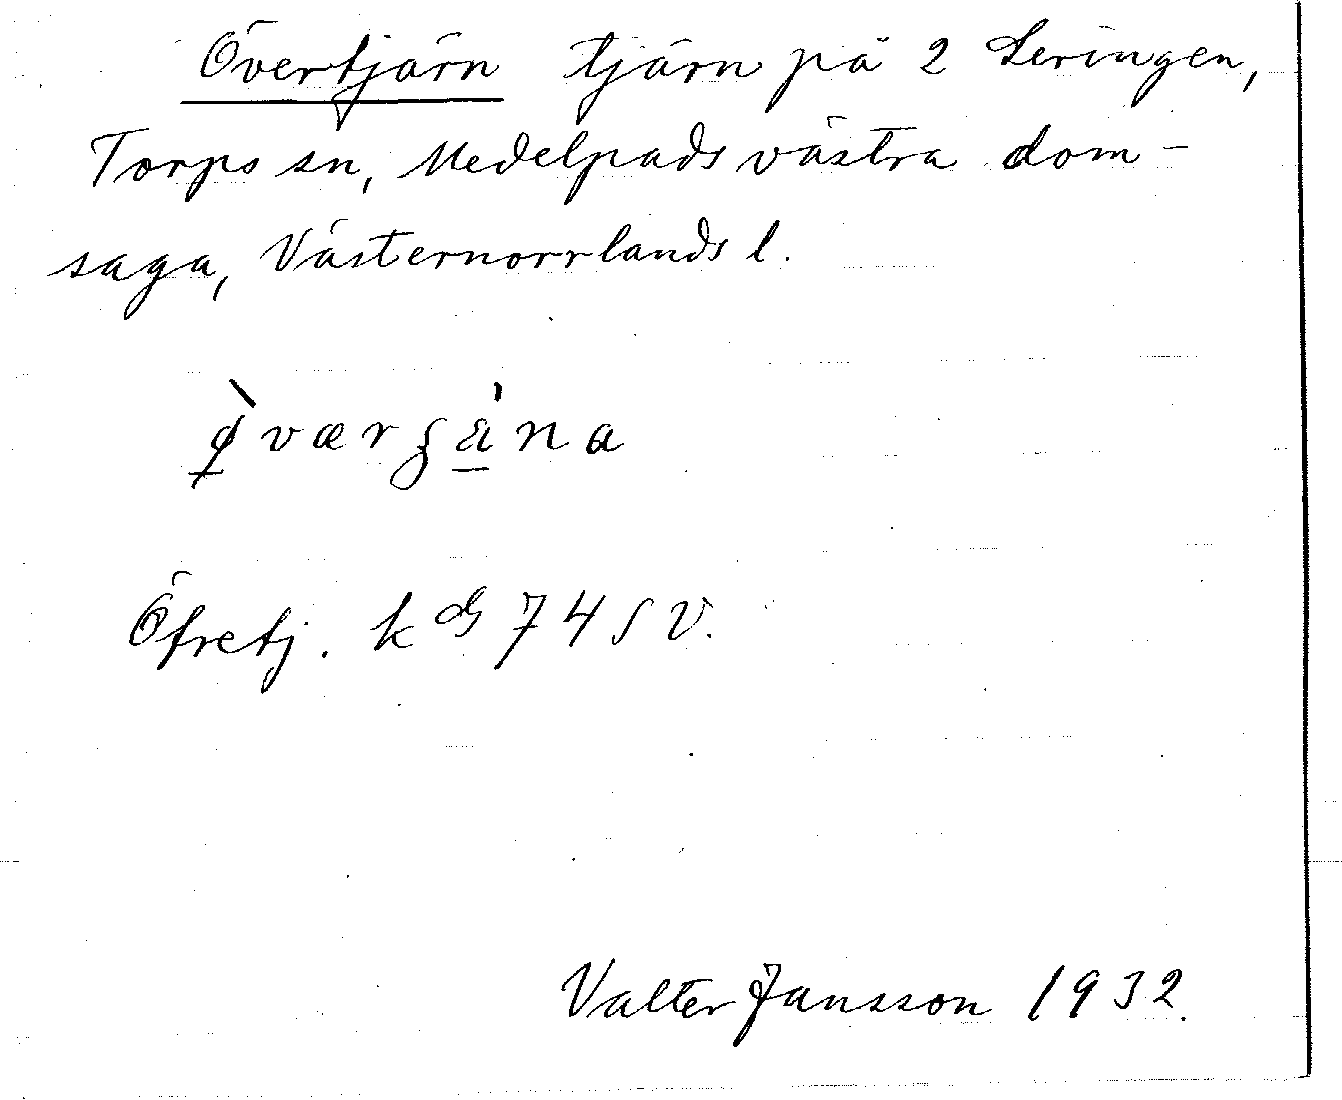 Övertjärn tjärn på 2 Leringen,
Torps sn, Medelpads västra dom-
saga, Västernorrlands l.
Öfretj. kds 74 SV.
Valter Jansson 1932.